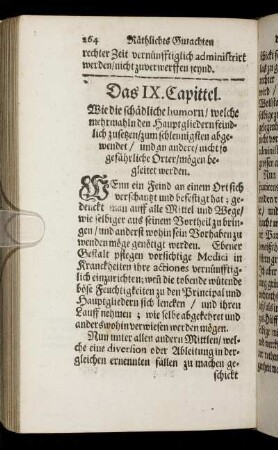 264 Räthliches Gutachten
rechter Zeit vernünfftiglich administrirt
werden / nicht zuverwerffen seynd.
Das IX. Capittel.
Wie die schädliche humorn / welche
mehrmahl in den Hauptgliedern feind-
lich zusetzen / zum schleunigsten abge-
wendet / und an andere / nicht so
gefährliche Orter / mögen be-
gleitet werden.
WEnn ein Feind an einem Ort sich
verschantzt und befestigt hat; ge-
denckt man auff alle Mittel und Wege /
wie selbiger aus seinem Vortheil zu brin-
gen / und anderst wohin sein Vorhaben zu
wenden möge genötigt werden. Ebener
Gestalt pflegen vorsichtige Medici in
Kranckheiten ihre actiones vernünfftig-
lich einzurichten; weil die tobende wütende
böse Feuchtigkeiten zu den Principal und
Hauptgliedern sich lencken / und ihren
Lauff nehmen; wie selbe abgekehret und
anderswohin verwiesen werden mögen.
Nun unter allen andern Mittlen / wel-
che eine diversion oder Ableitung in der-
gleichen ernennten fällen zu machen ge-
schickt